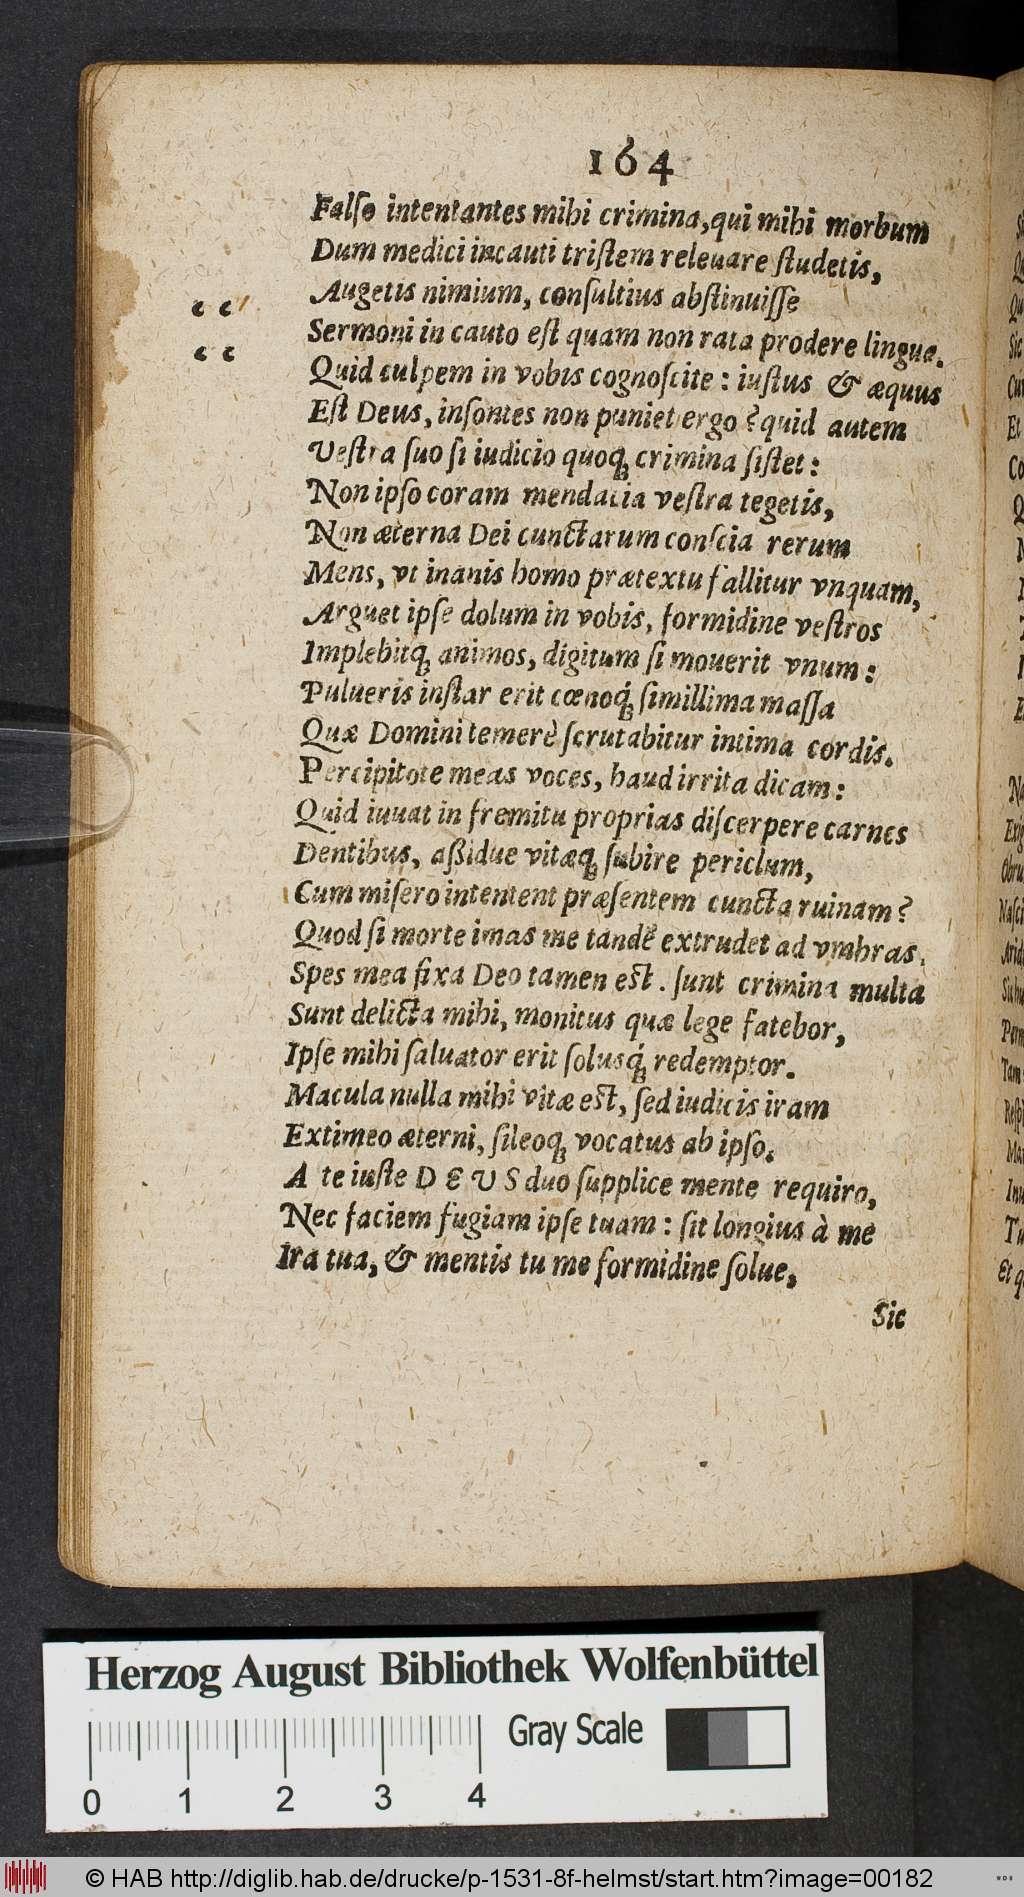 164
Falſo intentantes mihi crimina, qui mihi morbum
Dum medici incauti triſtem releuare ſtudetis,
Augetis nimium, conſultius abſtinuiſſe
Sermoni in cauto eſt quam non rata prodere linguæ.
Quid culpem in vobis cognoſcite: iuſtus & æquus
Eſt Deus, inſontes non puniet ergo? quid autem
Veſtra ſuo ſi iudicio quoq; crimina ſiſtet:
Non ipſo coram mendacia veſtra tegetis,
Non æterna Dei cunctarum conſcia rerum
Mens, vt inanis homo prætextu fallitur vnquam,
Arguet ipſe dolum in vobis, formidine veſtros
Implebitq; animos, digitum ſi mouerit vnum:
Pulueris inſtar erit cœnoq́; ſimillima maſſa
Quæ Domini temerè ſcrutabitur intima cordis.
Percipitote meas voces, haud irrita dicam:
Quid iuuat in fremitu proprias diſcerpere carnes
Dentibus, aßidue vitæq; ſubire periclum,
Cum miſero intentent præſentem cuncta ruinam?
Quod ſi morte imas me tandẽ extrudet ad vmbras,
Spes mea fixa Deo tamen est. ſunt crimina multa
Sunt delicta mihi, monitus quæ lege fatebor,
Ipſe mihi ſaluator erit ſolusq́; redemptor.
Macula nulla mihi vitæ est, ſed iudicis iram
Extimeo æterni, ſileoq; vocatus ab ipſo.
A te iuſte DEUS duo ſupplice mente requiro,
Nec faciem fugiam ipſe tuam: ſit longius à me
Ira tua, & mentis tu me formidine ſolue,
Sic
Herzog August Bibliothek Wolfenbüttel
Gray Scale
0 1 2 3 4
© HAB http://diglib.hab.de/drucke/p-1531-8f-helmst/start.htm?image=00182